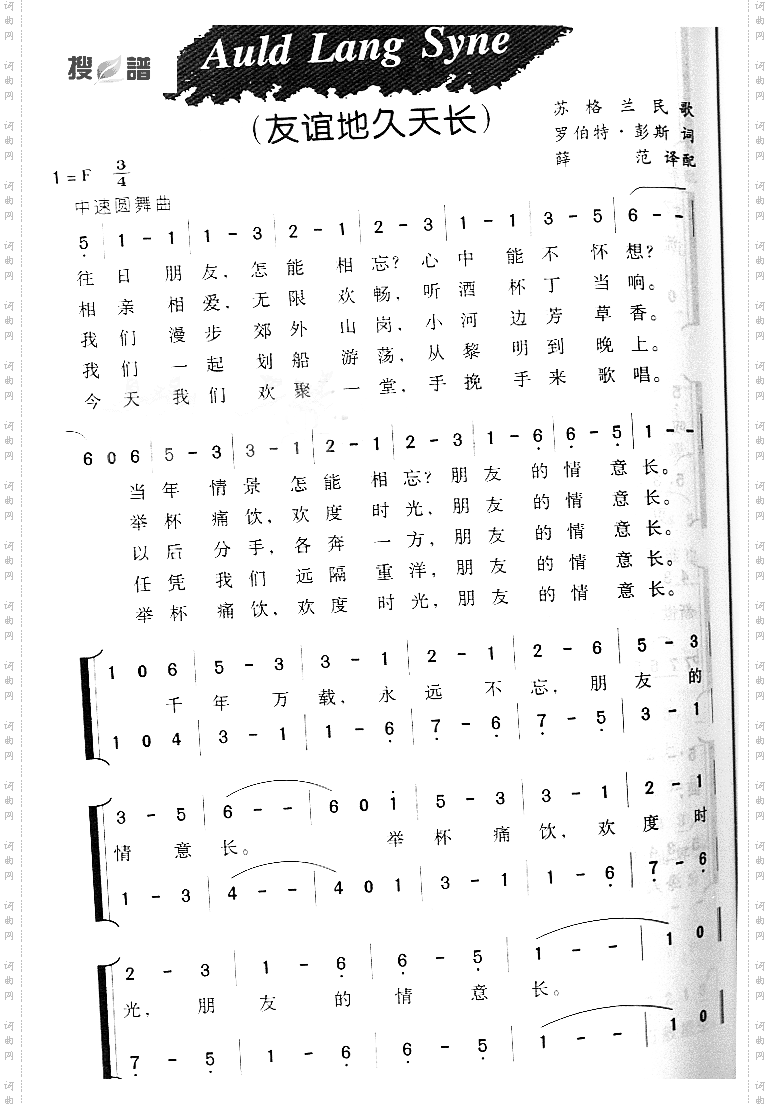 Auld Lang Syne
搜 谱
(友谊地久天长)
苏格兰民歌
罗伯特·彭斯 词
薛 范 译配
1=F 3/4
中速圆舞曲
5 | 1 - 1 | 1 - 3 | 2 - 1 | 2 - 3 | 1 - 1 | 3 - 5 | 6 - - |
往 日 朋 友, 怎 能 相 忘? 心 中 能 不 怀 想?
相 亲 相 爱, 无 限 欢 畅, 听 酒 杯 丁 当 响。
我 们 漫 步 郊 外 山 岗, 小 河 边 芳 草 香。
我 们 一 起 划 船 游 荡, 从 黎 明 到 晚 上。
今 天 我 们 欢 聚 一 堂, 手 挽 手 来 歌 唱。
6 0 6 | 5 - 3 | 3 - 1 | 2 - 1 | 2 - 3 | 1 - 6 | 6 - 5 | 1 - - |
当 年 情 景 怎 能 相 忘? 朋 友 的 情 意 长。
举 杯 痛 饮, 欢 度 时 光, 朋 友 的 情 意 长。
以 后 分 手, 各 奔 一 方, 朋 友 的 情 意 长。
任 凭 我 们 远 隔 重 洋, 朋 友 的 情 意 长。
举 杯 痛 饮, 欢 度 时 光, 朋 友 的 情 意 长。
1 0 6 | 5 - 3 | 3 - 1 | 2 - 1 | 2 - 6 | 5 - 3 |
千 年 万 载, 永 远 不 忘, 朋 友 的
1 0 4 | 3 - 1 | 1 - 6 | 7 - 6 | 7 - 5 | 3 - 1 |
3 - 5 | 6 - - | 6 0 i | 5 - 3 | 3 - 1 | 2 - 1 |
情 意 长。 举 杯 痛 饮, 欢 度 时
1 - 3 | 4 - - | 4 0 1 | 3 - 1 | 1 - 6 | 7 - 6 |
2 - 3 | 1 - 6 | 6 - 5 | 1 - - | 1 0 |
光, 朋 友 的 情 意 长。
7 - 5 | 1 - 6 | 6 - 5 | 1 - - | 1 0 |
词曲网